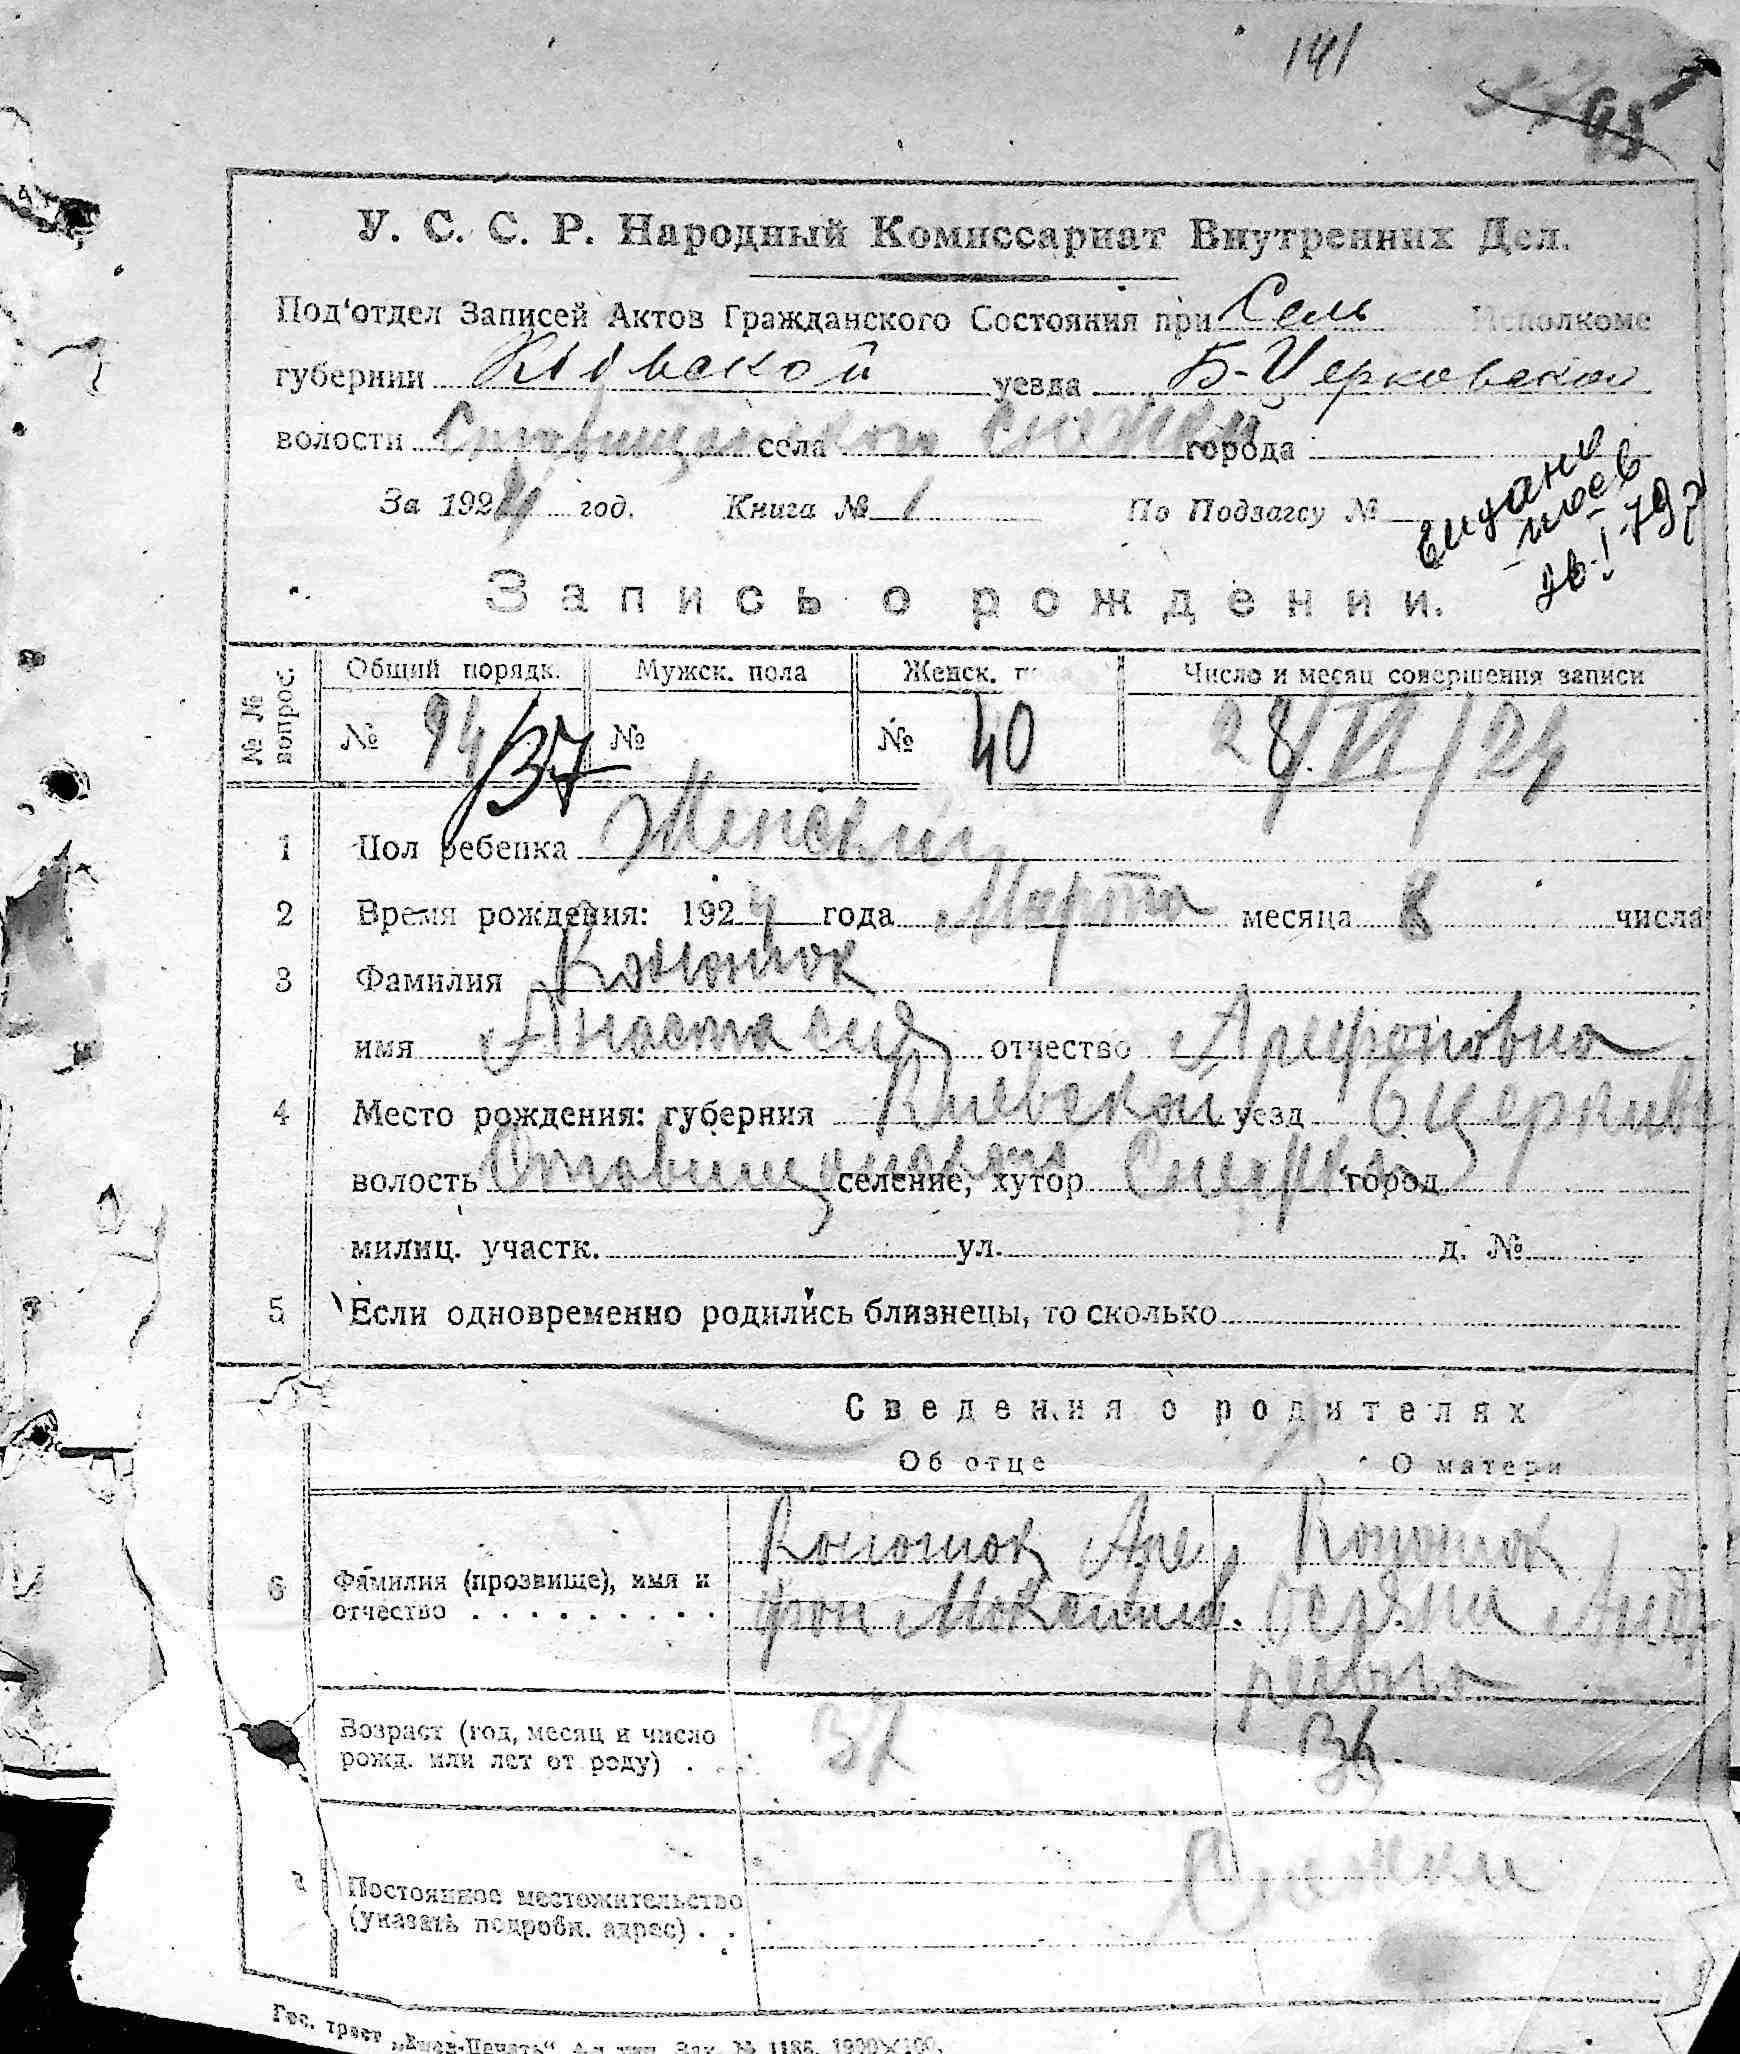 141
95
У. С. С. Р. Народный Комиссариат Внутренних Дел.
Под'отдел Записей Актов Гражданского Состояния при Сель Исполкоме
губернии Київской уезда Б-Церковской
волости Ставищанского села Снежки города
За 1924 год. Книга № 1 По Подзагсу №
26.I.79р
Запись о рождении.
№№ вопрос. Общий порядк. Мужск. пола Женск. пола Число и месяц совершения записи
№ 94/37 № № 40 28/VI/24
1 Пол ребенка Женский
2 Время рождения: 1924 года Марта месяца 8 числа
3 Фамилия Конюшок
имя Анастасия отчество Агафоновна
4 Место рождения: губерния Киевской уезд Бцеркивс
волость Ставищанского селение, хутор Снежки город
милиц. участк. ул. д. №
5 Если одновременно родились близнецы, то сколько
Сведения о родителях
Об отце О матери
6 Фамилия (прозвище), имя и отчество Конюшок Конюшок
Возраст (год, месяц и число рожд. или лет от роду) 37 36.
Постоянное местожительство (указать подробн. адрес) Снежки
Гос. трест „Киев-Печать“ Зак. № 1186. 1900×100.